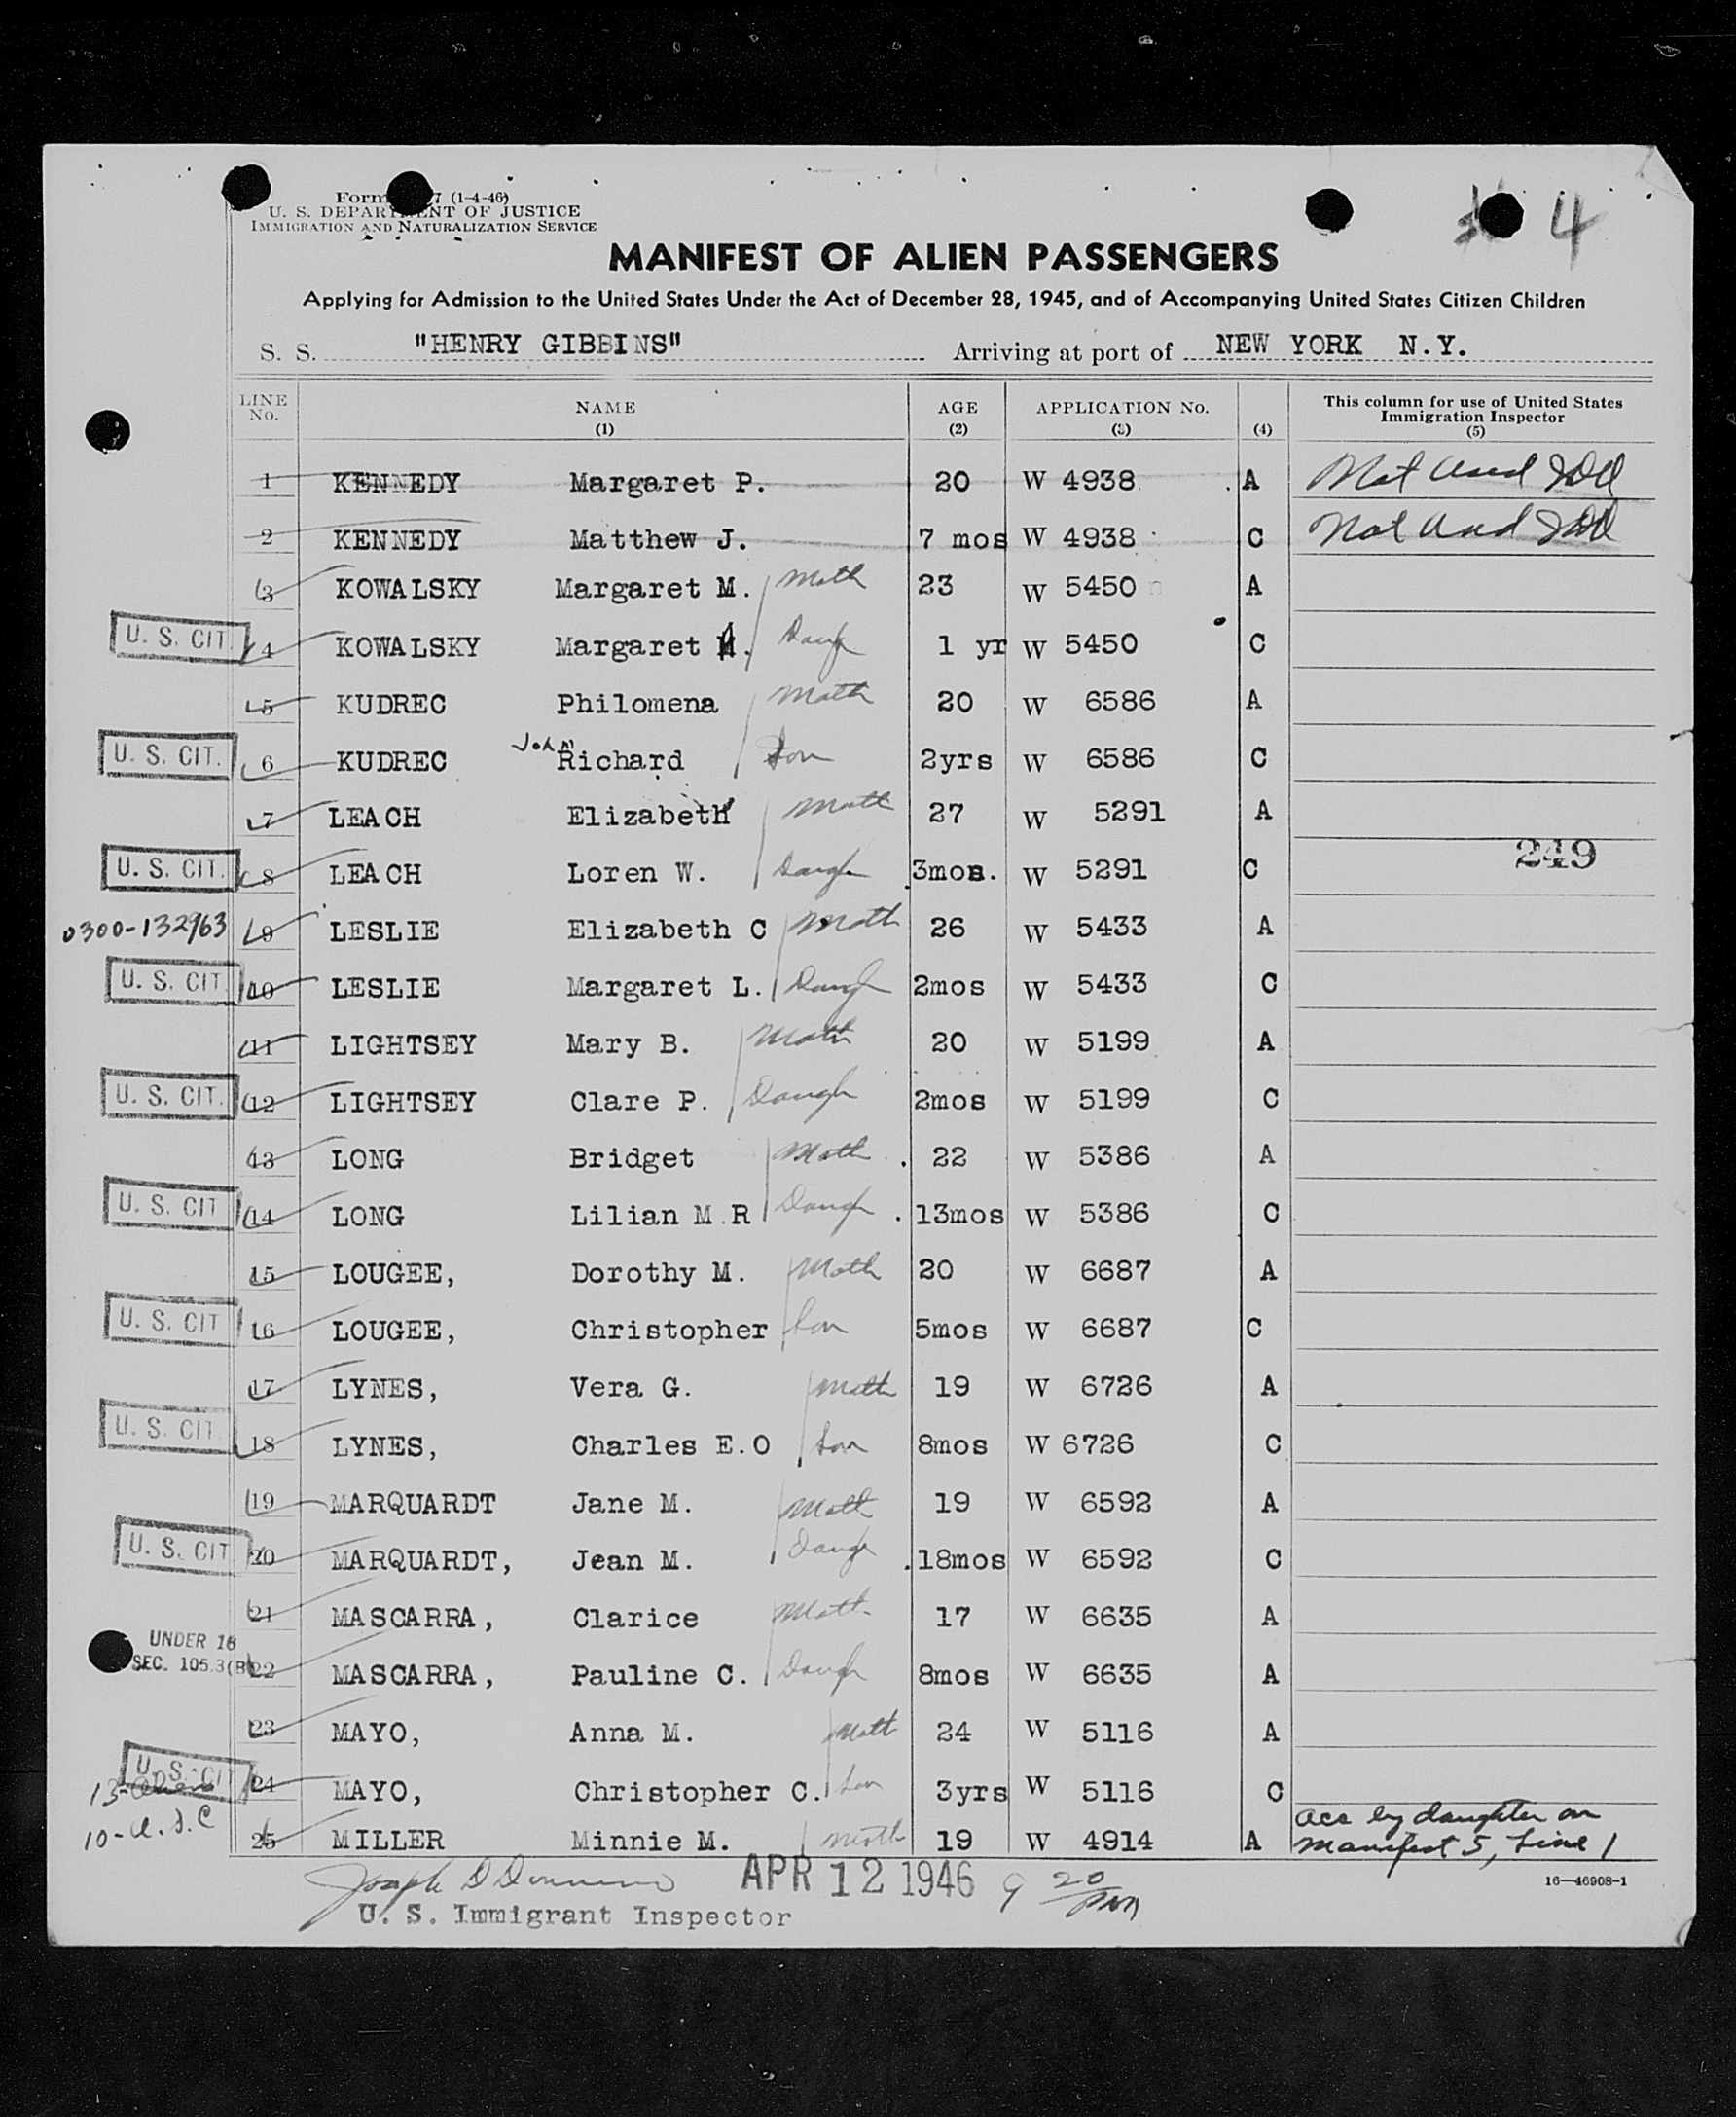 4
Form 7 (1-4-46)
U. S. DEPARTMENT OF JUSTICE
IMMIGRATION AND NATURALIZATION SERVICE
MANIFEST OF ALIEN PASSENGERS
Applying for Admission to the United States Under the Act of December 28, 1945, and of Accompanying United States Citizen Children
S. S. "HENRY GIBBINS" Arriving at port of NEW YORK N.Y.
LINE No. NAME (1) AGE (2) APPLICATION No. (3) (4) This column for use of United States Immigration Inspector (5)
1 KENNEDY Margaret P. 20 W 4938 A Not
2 KENNEDY Matthew J. 7 mos W 4938 C Not
3 KOWALSKY Margaret M. Moth 23 W 5450 A
U. S. CIT. 4 KOWALSKY Margaret A. Daugh 1 yr W 5450 C
5 KUDREC Philomena Moth 20 W 6586 A
U. S. CIT. 6 KUDREC John Richard Son 2yrs W 6586 C
7 LEACH Elizabeth Moth 27 W 5291 A
249
U. S. CIT. 8 LEACH Loren W. Daugh 3mos. W 5291 C
0300-132963 9 LESLIE Elizabeth C Moth 26 W 5433 A
U. S. CIT. 10 LESLIE Margaret L. Daugh 2mos W 5433 C
11 LIGHTSEY Mary B. Moth 20 W 5199 A
U. S. CIT. 12 LIGHTSEY Clare P. Daugh 2mos W 5199 C
13 LONG Bridget Moth 22 W 5386 A
U. S. CIT 14 LONG Lilian M.R Daugh 13mos W 5386 C
15 LOUGEE, Dorothy M. Moth 20 W 6687 A
U. S. CIT 16 LOUGEE, Christopher Son 5mos W 6687 C
17 LYNES, Vera G. Moth 19 W 6726 A
U. S. CIT. 18 LYNES, Charles E.O Son 8mos W 6726 C
19 MARQUARDT Jane M. Moth 19 W 6592 A
U. S. CIT 20 MARQUARDT, Jean M. Daugh 18mos W 6592 C
21 MASCARRA, Clarice Moth 17 W 6635 A
UNDER 16
SEC. 105.3(B) 22 MASCARRA, Pauline C. Daugh 8mos W 6635 A
23 MAYO, Anna M. Moth 24 W 5116 A
U. S. CIT 24 MAYO, Christopher C. Son 3yrs W 5116 C
13-Aliens
10-U.S.C
25 MILLER Minnie M. Moth 19 W 4914 A acc by daughter on manifest 5, Line 1
Joseph D
APR 12 1946 9 20 PM
16—46908-1
U. S. Immigrant Inspector